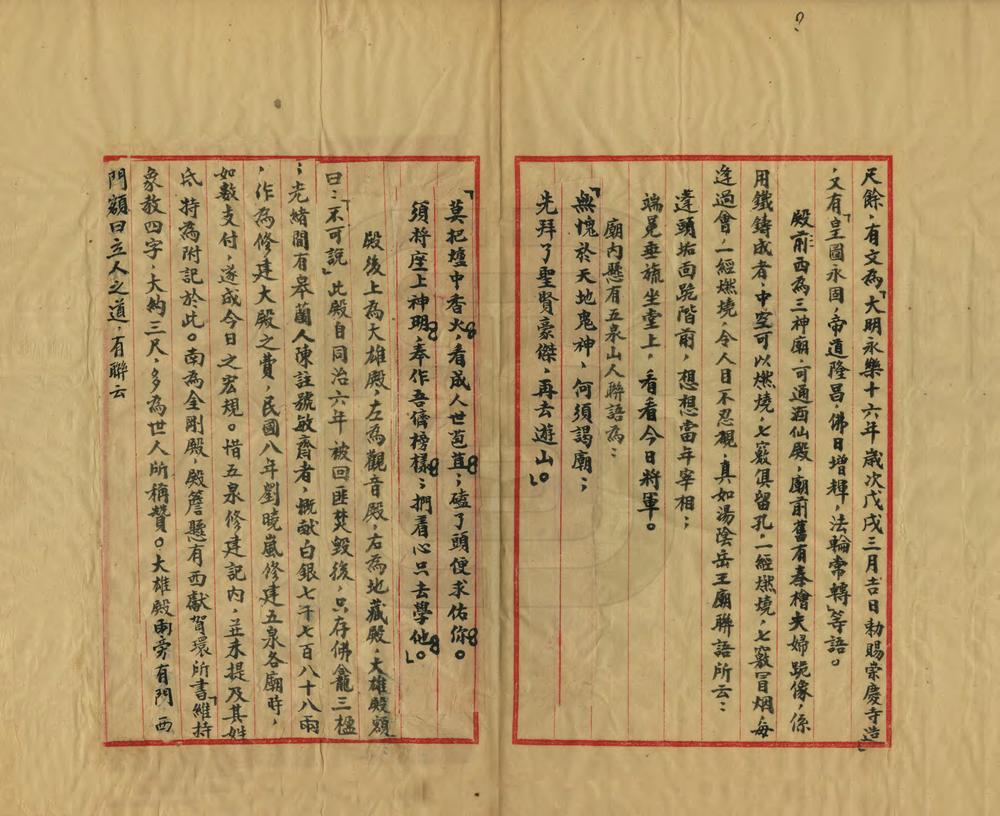 ?
尺餘，有文為「大明永樂十六年歲次戊戌三月吉日勅賜崇慶寺造」
，又有「皇圖永固，帝道隆昌，佛日增輝，法輪常轉」等語。
殿前西為三神廟，可通酒仙殿，廟前舊有秦檜夫婦跪像，係
用鐵鑄成者，中空可以燃燒，七竅俱留孔，一經燃燒，七竅冒烟，每
逢過會，一經燃燒，令人目不忍覩，真如湯陰岳王廟聯語所云：
蓬頭垢面跪階前，想想當年宰相；
端冕垂旒坐堂上，看看今日將軍。
廟內懸有五泉山人聯語為：
「無愧於天地鬼神，何須謁廟；
先拜了聖賢豪傑，再去遊山。」
「莫把壚中香火，看成人世苞苴；磕了頭便求佑你。
須將座上神明，奉作吾儕榜樣；捫着心只去學他。」
殿後上為大雄殿，左為觀音殿，右為地藏殿，大雄殿額
曰：「不可說」此殿自同治六年被回匪焚毀後，只存佛龕三楹
；光緒間有皋蘭人陳註號敏齋者，慨献白銀七千七百八十八兩
，作為修建大殿之費，民國八年劉曉嵐修建五泉各廟時，
如數支付，遂成今日之宏規。惜五泉修建記內，並未提及其姓
氏特為附記於此。南為金剛殿，殿簷懸有西獻賀環所書「維持
象教四字，大約三尺，多為世人所稱贊。大雄殿兩旁有門西
門額曰立人之道，有聯云